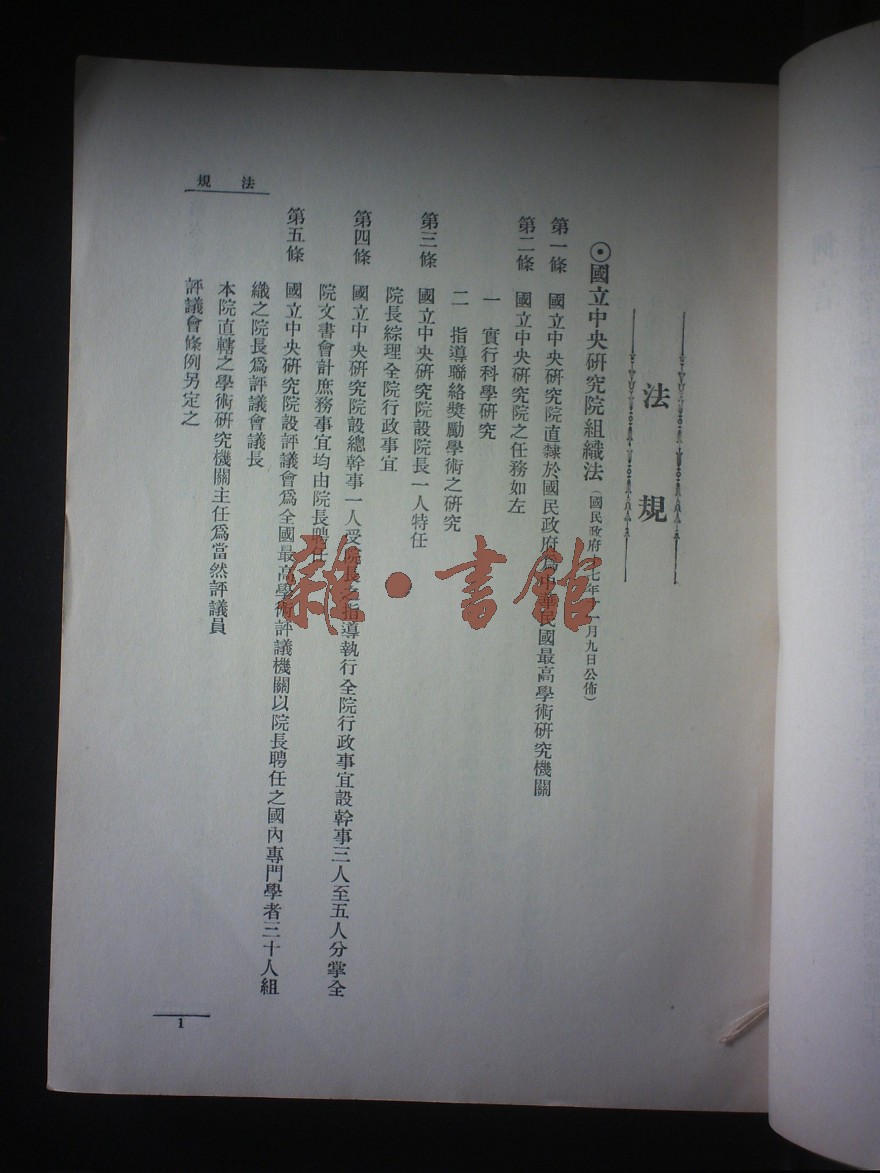 法規
法規
⊙國立中央研究院組織法(國民政府十七年十一月九日公佈)
第一條 國立中央研究院直隸於國民政府爲中華民國最高學術研究機關
第二條 國立中央研究院之任務如左
一 實行科學研究
二 指導聯絡獎勵學術之研究
第三條 國立中央研究院設院長一人特任
院長綜理全院行政事宜
第四條 國立中央研究院設總幹事一人受院長之指導執行全院行政事宜設幹事三人至五人分掌全
院文書會計庶務事宜均由院長聘任
第五條 國立中央研究院設評議會爲全國最高學術評議機關以院長聘任之國內專門學者三十人組
織之院長爲評議會議長
本院直轄之學術研究機關主任爲當然評議員
評議會條例另定之
1
雜·書館